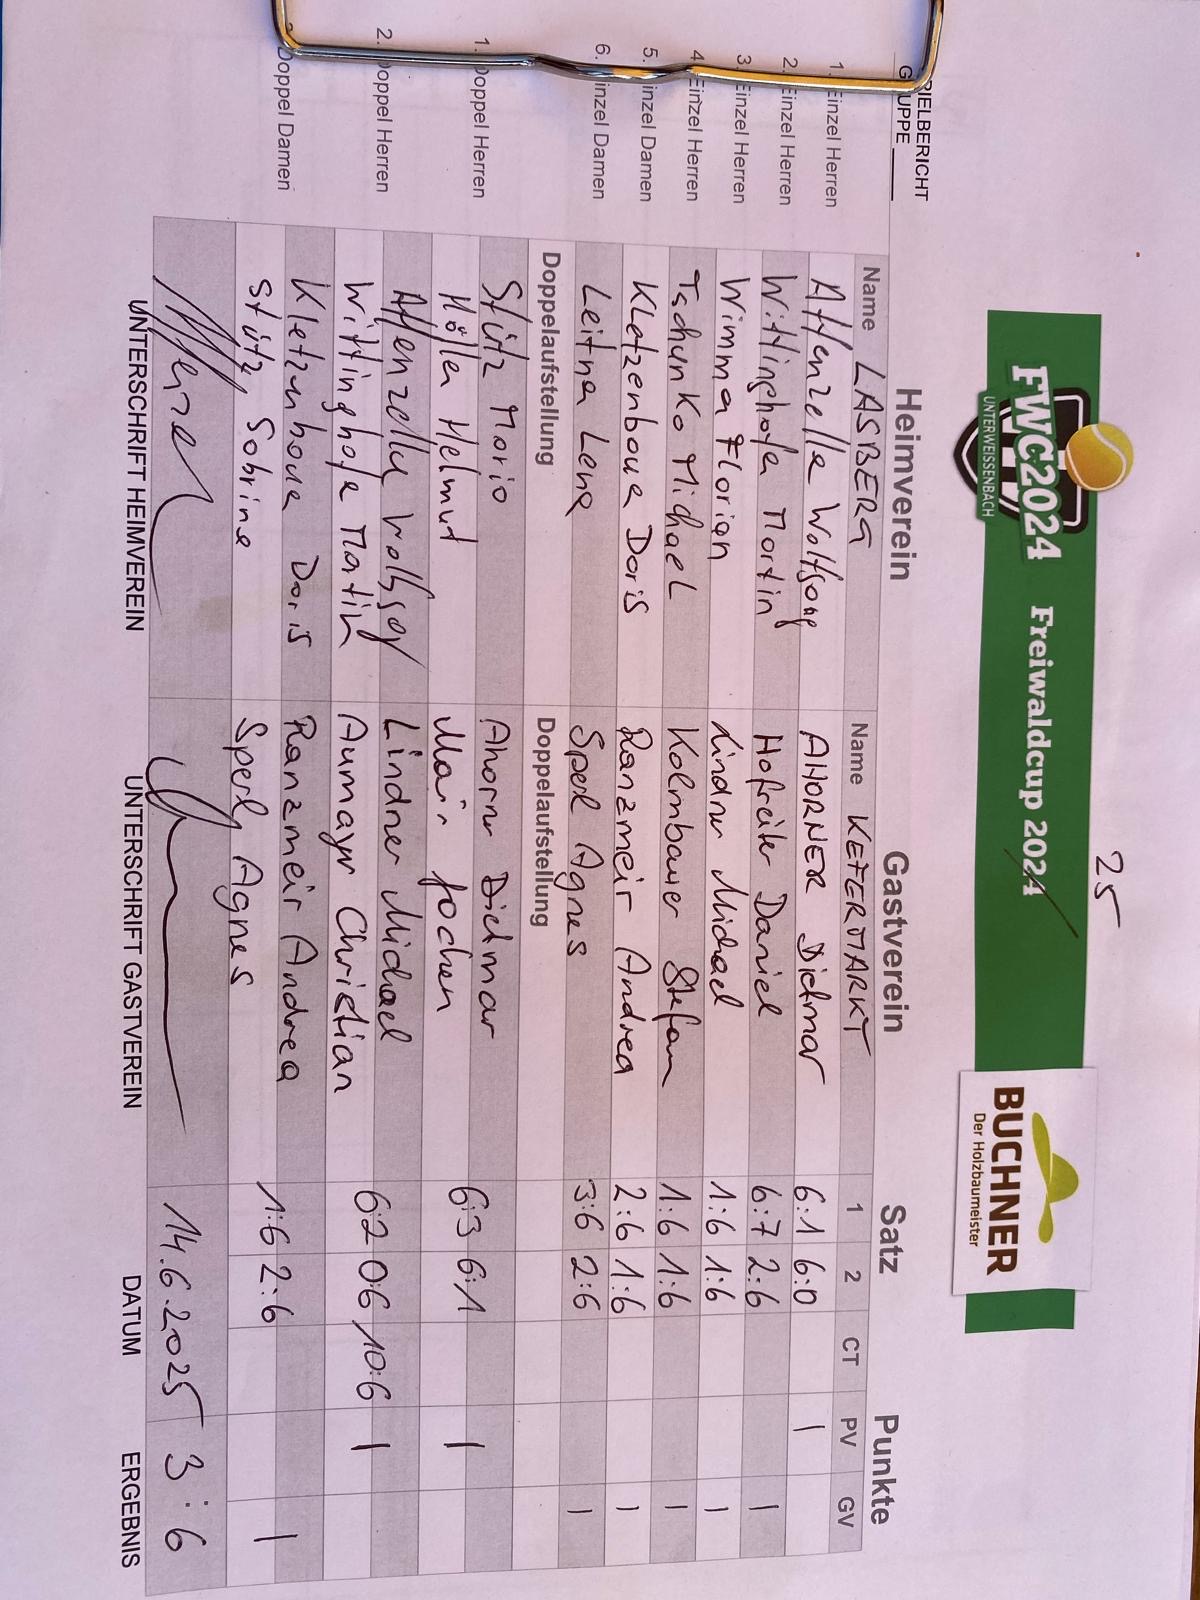 25
FWC2024
UNTERWEISSENBACH
Freiwaldcup 2024
BUCHNER
Der Holzbaumeister
PIELBERICHT
G UPPE
Heimverein Gastverein Satz Punkte
Name LASBERG Name KEFERMARKT 1 2 CT PV GV
1. Einzel Herren Affenzeller Wolfgang AHORNER Dietmar 6:1 6:0 1
2. Einzel Herren Wittinghofer Martin Hofreiter Daniel 6:7 2:6 1
3. Einzel Herren Wimmer Florian Lindner Michael 1:6 1:6 1
4 Einzel Herren Tschunko Michael Kolmbauer Stefan 1:6 1:6 1
5. inzel Damen Kletzenbauer Doris Ranzmeir Andrea 2:6 1:6 1
6. inzel Damen Leitner Lena Sperl Agnes 3:6 2:6 1
Doppelaufstellung Doppelaufstellung
1. Doppel Herren Stütz Mario Ahorner Dietmar
Höller Helmut Mair Jochen 6:3 6:1 1
2. Doppel Herren Affenzeller Wolfgang Lindner Michael
Wittinghofer Martin Aumayr Christian 6:2 0:6 10:6 1
Doppel Damen Kletzenbauer Doris Ranzmeir Andrea
Stütz Sabrine Sperl Agnes 1:6 2:6 1
14.6.2025 3:6
UNTERSCHRIFT HEIMVEREIN UNTERSCHRIFT GASTVEREIN DATUM ERGEBNIS